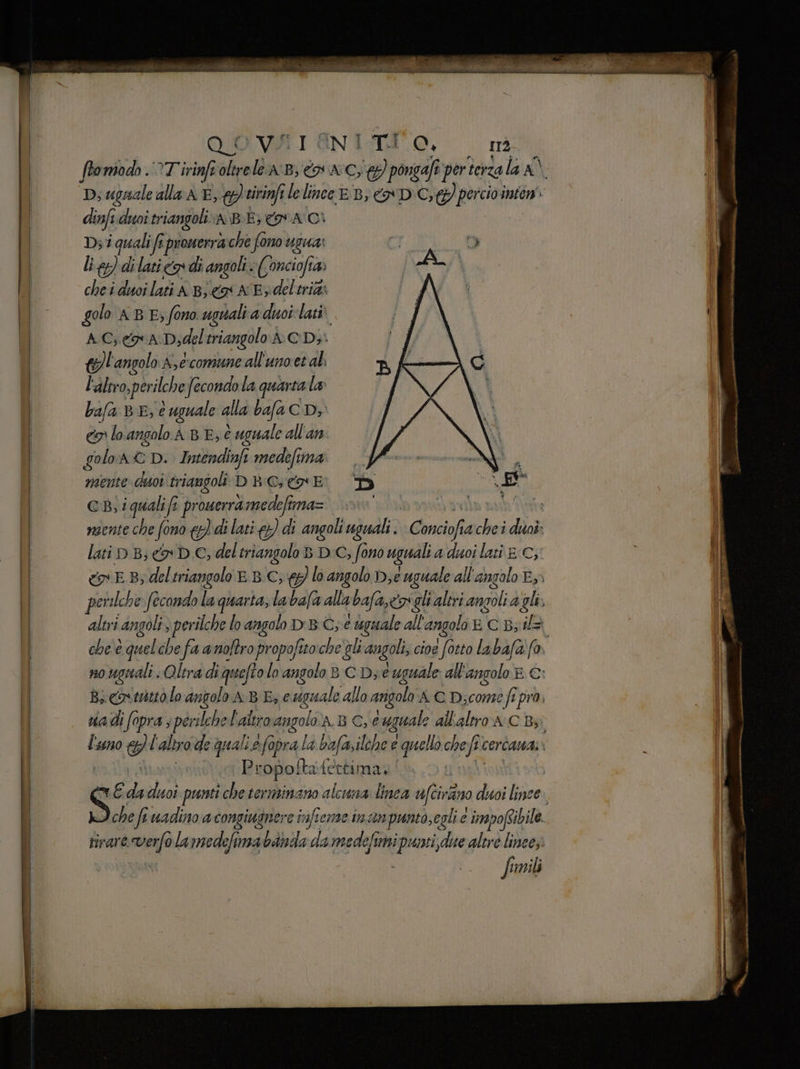 QVINTO. 112
stomodo. Tirinsi oltre le A B, & A C, & pongasi per terza la A
D, uguale alla A E, & tirinsi le linee E B, & D C, & percio inten-
dinsi duoi triangoli A B E, & A C
D, i quali si prouerrà che sono ugua-
li & di lati & di angoli. Conciosia
che i duoi lati A B, & A E, del trian-
golo A B E, sono uguali a duoi lati
A C, & A D, del triangolo A C D,
& l'angolo A, è comune all'uno et al
l'altro, perilche secondo la quarta la
basa B E, è uguale alla basa C D,
& lo angolo A B E, è uguale all'an
golo A C D. Intendinsi medesima
mente duoi triangoli D B C, & E
C B, i quali si prouerrà medesima=
A
B C
D E
mente che sono & di lati & di angoli uguali. Conciosia che i duoi
lati D B, & D C, del triangolo B D C, sono uguali a duoi lati E C,
& E B, del triangolo E B C, & lo angolo D, è uguale all'angolo E,
perilche secondo la quarta, la basa alla basa, & gli altri angoli a gli
altri angoli, perilche lo angolo D B C, è uguale all'angolo E C B, il=
che è quel che fa a nostro proposito che gli angoli, cioè sotto la basa so
no uguali. Oltra di questo lo angolo B C D, è uguale all'angolo E C
B, & tutto lo angolo A B E, e uguale allo angolo A C D, come si pro
ua di sopra, perilche l'altro angolo A B C, è uguale all'altro A C B,
l'uno & l'altro de quali è sopra la basa, ilche è quello che si cercaua.
Proposta settima.
SE da duoi punti che terminano alcuna linea usciràno duoi linee
che si uadino a congiugnere insieme in un punto, egli è impossibile
tirare verso la medesima banda da medesimi punti, due altre linee,
simili